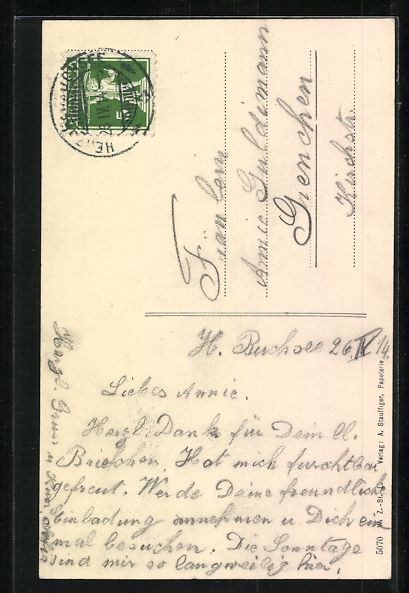 Fräulein
Annie Guldimann
Grenchen
Kirchstr.
H. Buchsee 26 IV 14.
Liebes Annie.
Herzl. Dank für Dein lb.
Briefchen. Hat mich furchtbar
gefreut. Werde Deine freundliche
Einladung annehmen u Dich ein
mal besuchen. Die Sonntage
sind mir so langweilig hier.
Herzl. Gruss u Kuss
5070 Verlag: A. Stauffiger, Papeterie